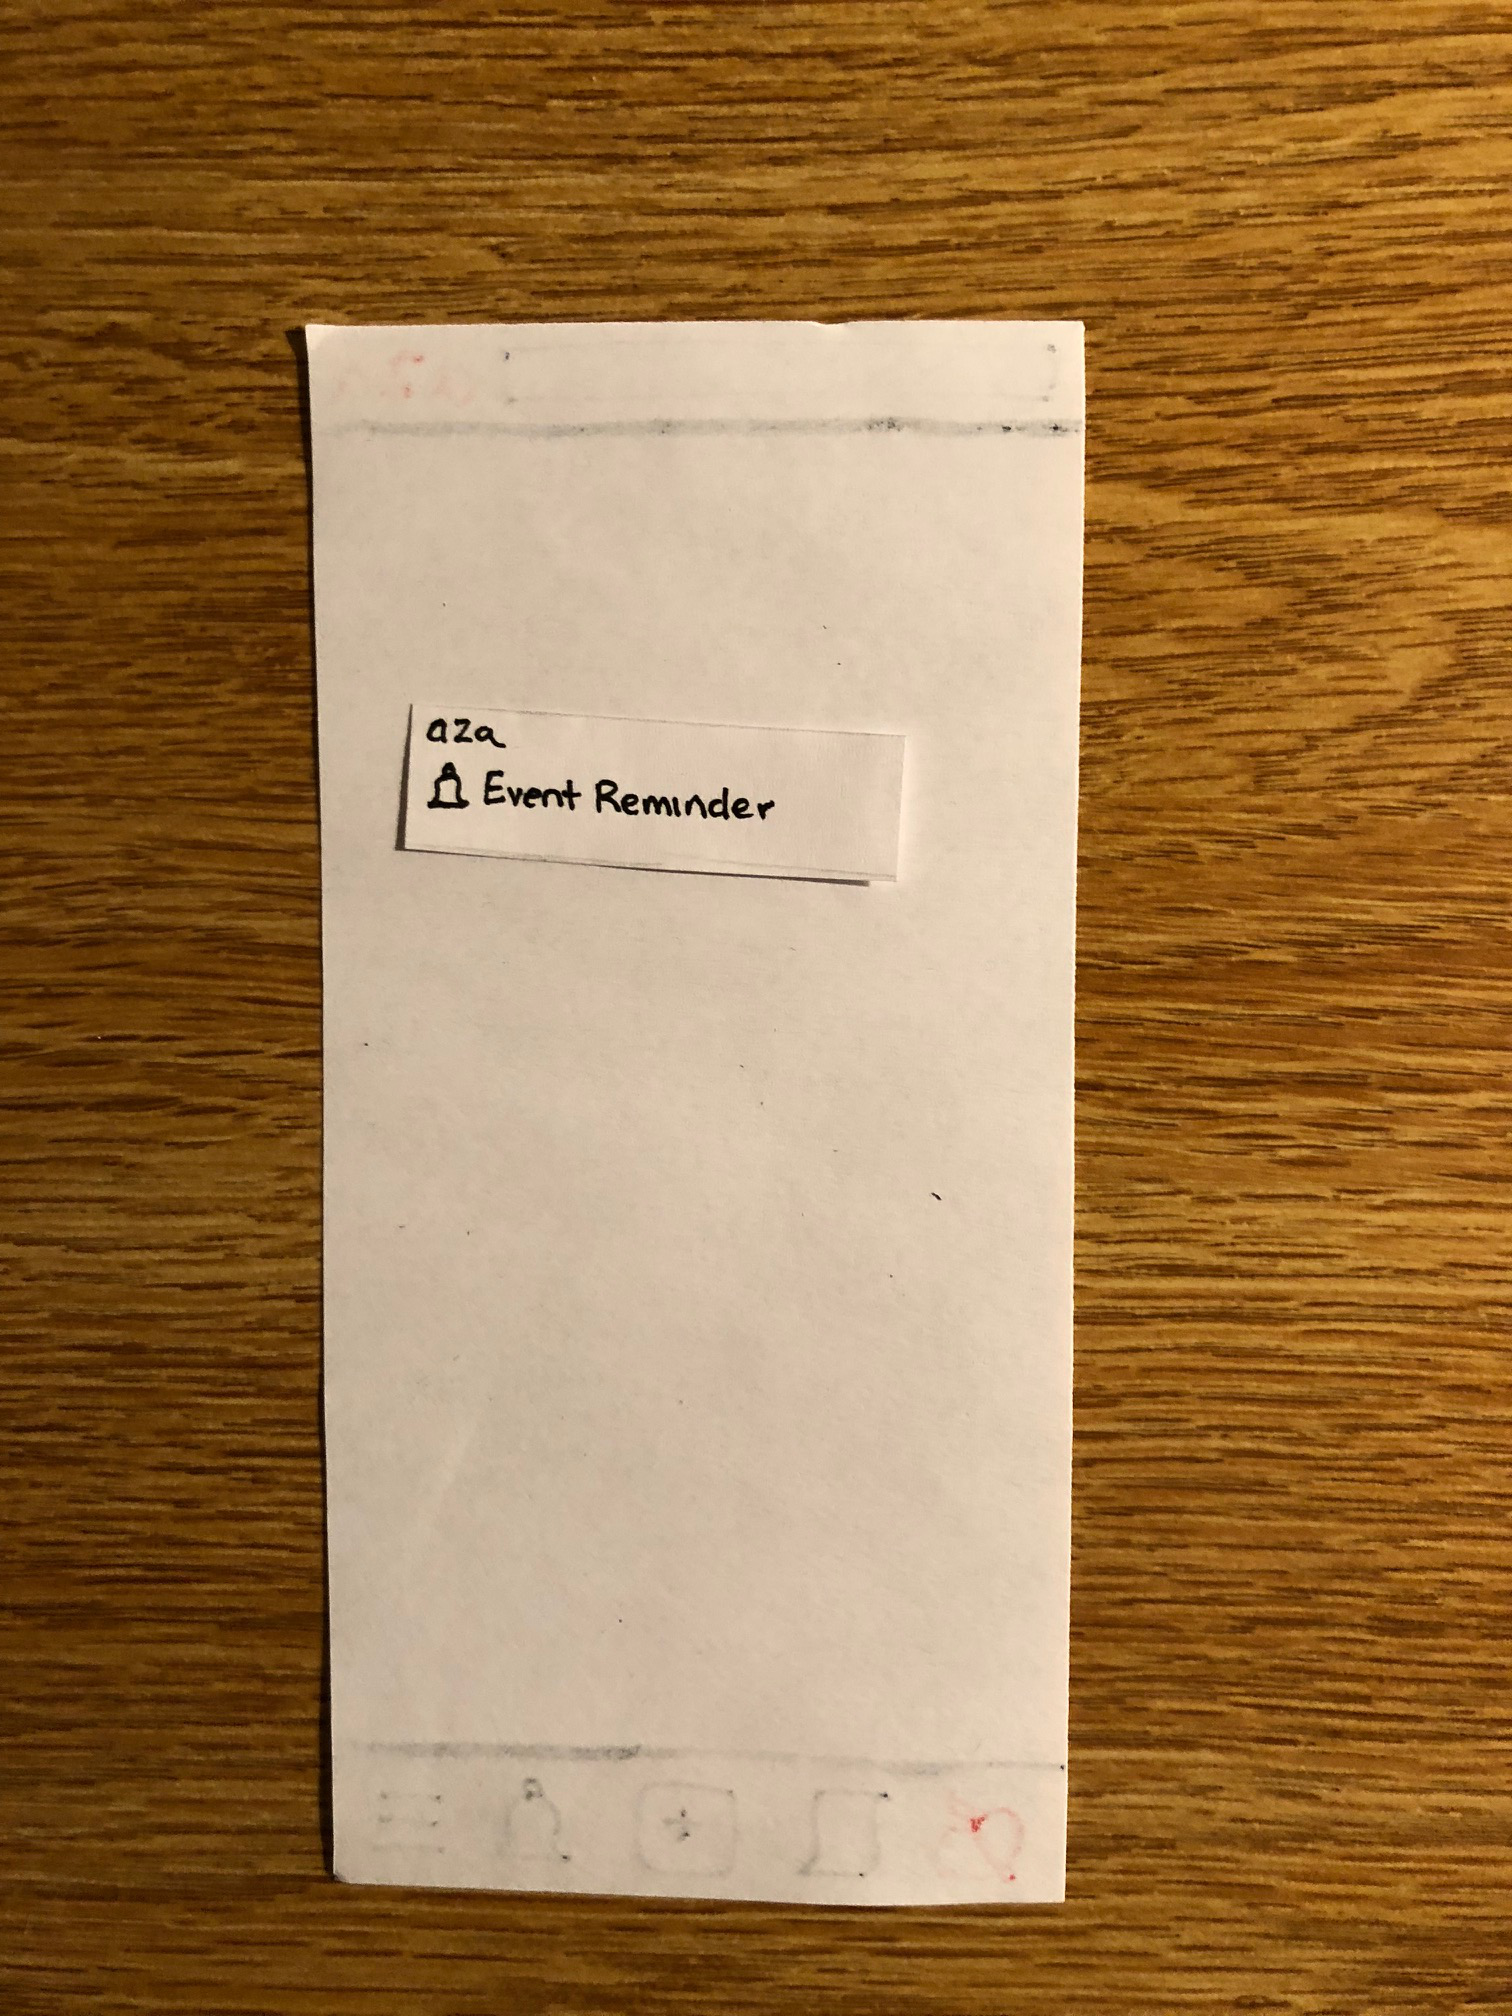 aza
Event Reminder